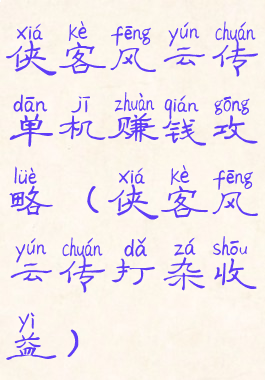 xiá kè fēng yún chuán
侠客风云传
dān jī zhuàn qián gōng
单机赚钱攻
lüè xiá kè fēng
略（侠客风
yún chuán dǎ zá shōu
云传打杂收
yì
益）